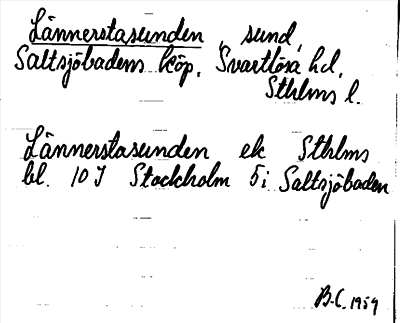 Lännerstasunden, sund,
Saltsjöbadens köp. Svartlösa hd.
Sthlms l.
Lännerstasunden ek Sthlms
bl. 10 I Stockholm 5i Saltsjöbaden
B.C. 1959